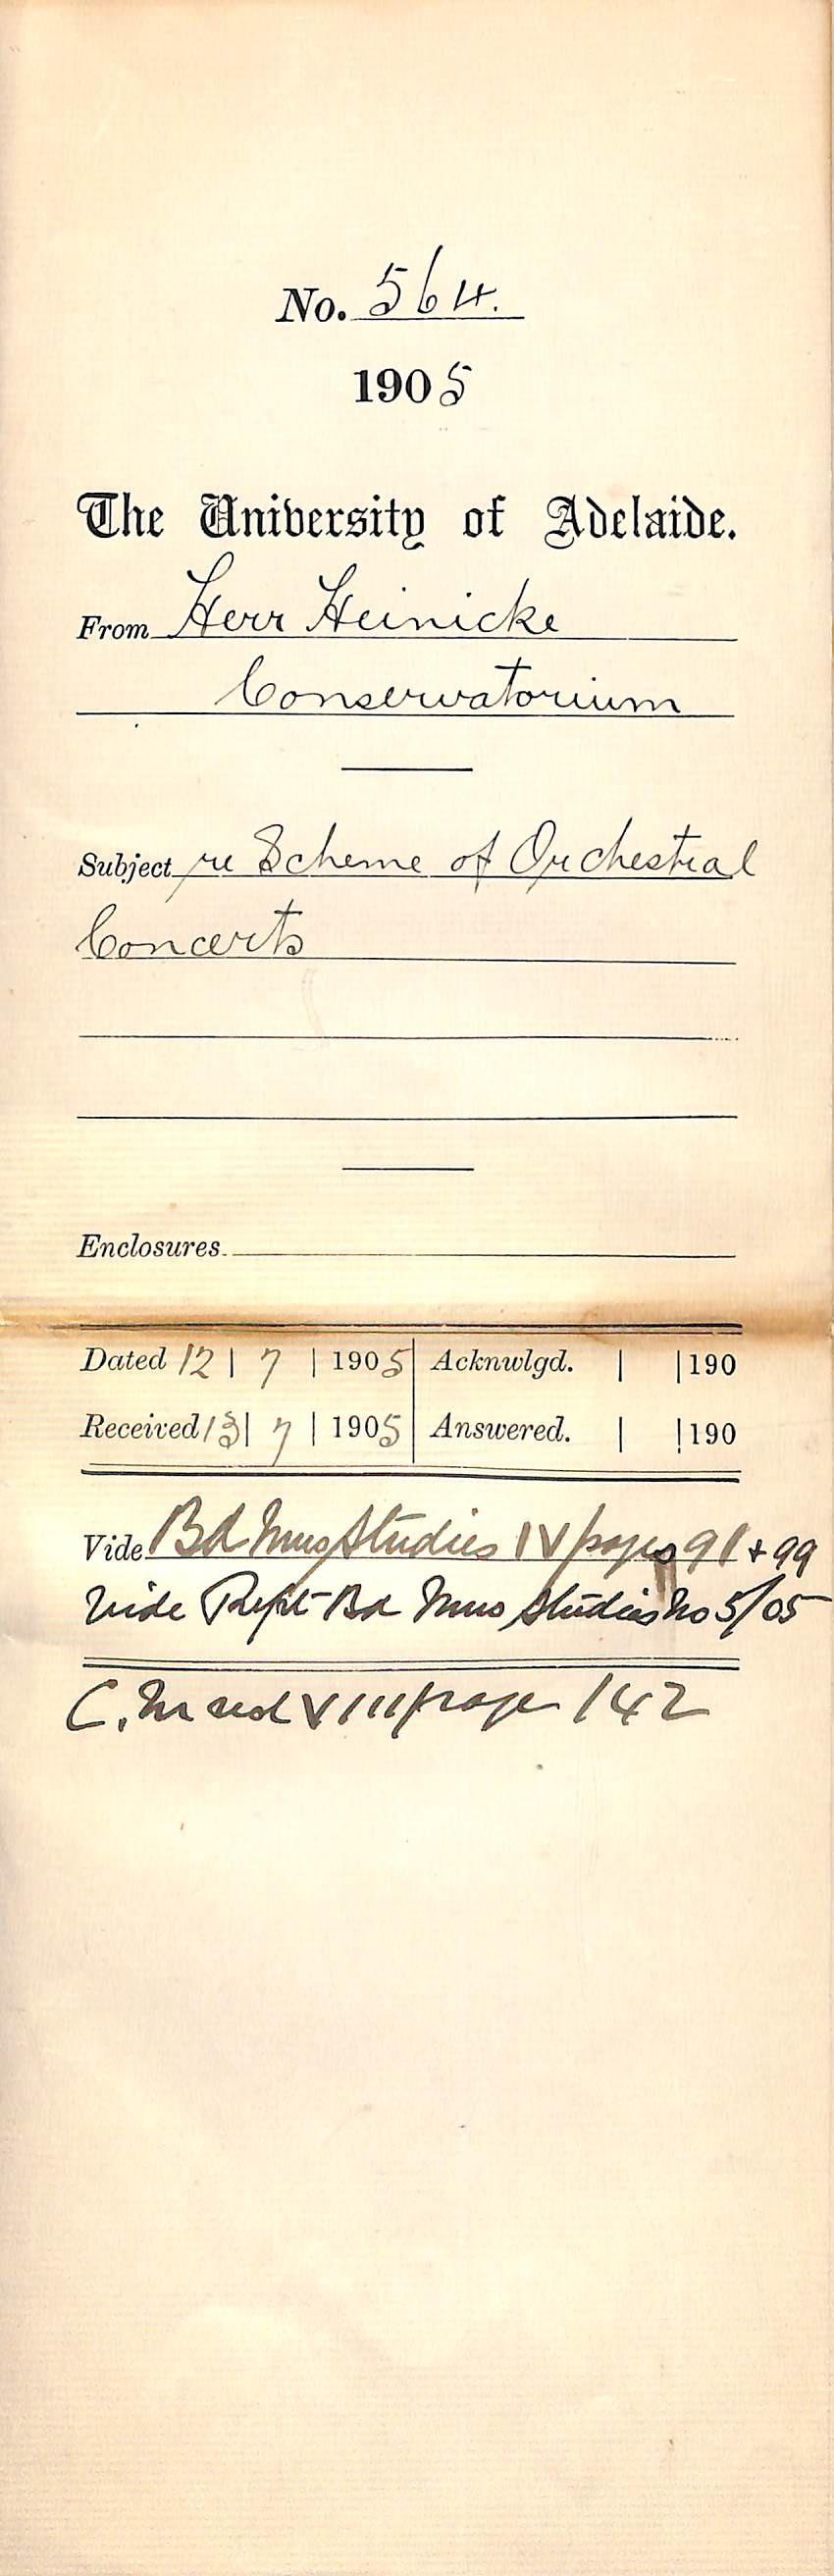 No. 564.
1905
The University of Adelaide.
From Herr Heinicke
Conservatorium
Subject re Scheme of Orchestral
Concerts
Enclosures.
Dated 12 | 7 | 1905 Acknwlgd. | | 190
Received 13 | 7 | 1905 Answered. | | 190
Vide Bd Mus Studies IV pages 91 + 99
Vide Rept Bd Mus Studies No 5/05
C. VIII page 142